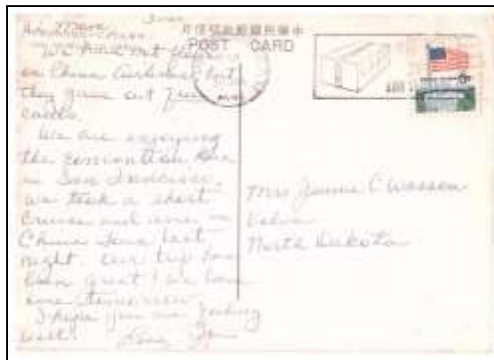 中華民國郵政明信片
POST CARD
We are not flying
on China Airlines but
they gave out free
cards.
We are enjoying
the convention here
in San Francisco.
We took a short
cruise and were in
China Town last
night. Our trip has
been great! We
home tomorrow.
I hope you are feeling
well!
Love
Mrs Jennie C Wasson
Velva
North Dakota